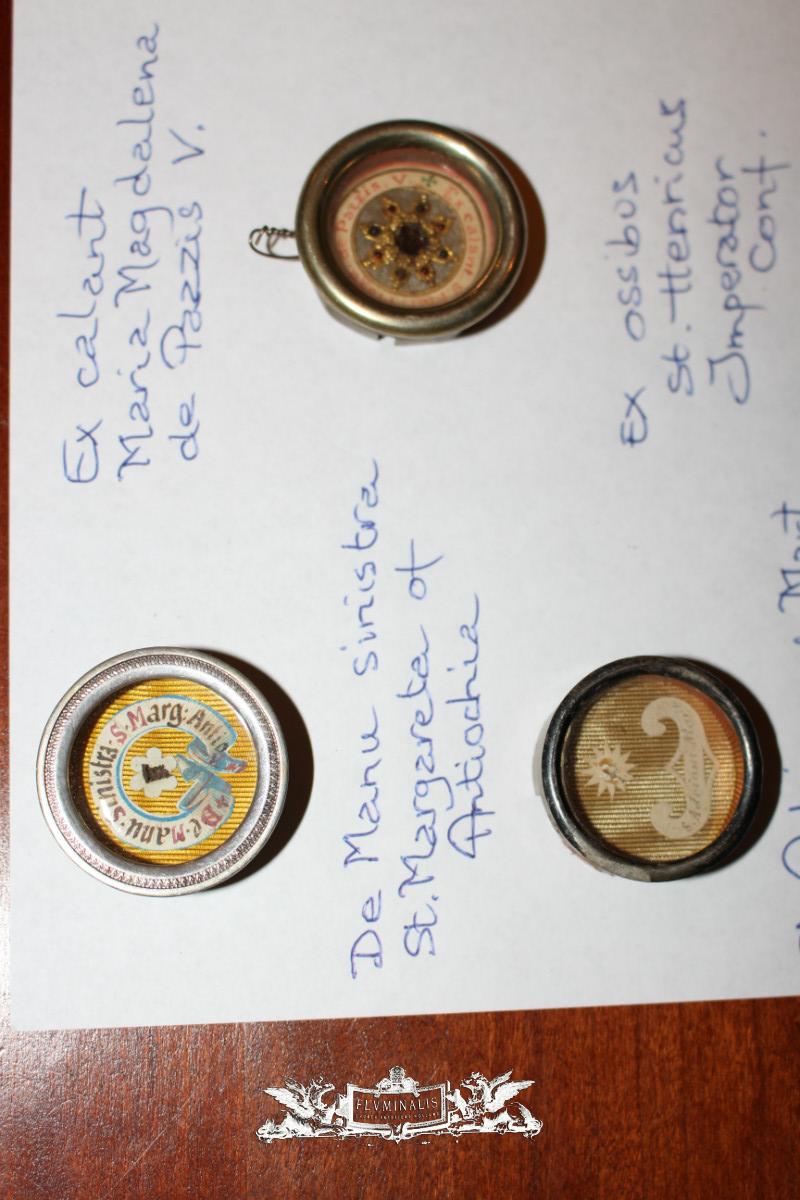 Ex calant
Maria Magdalena
de Pazzis V.
Pazzis V. ✢ Ex calant
Ex ossibus
St. Henricus
Imperator
Conf.
De Manu Sinistra
St. Margareta of
Antiochia
De·Manu·Sinistra·S·Marg·Antio
Mart
FLVMINALIS